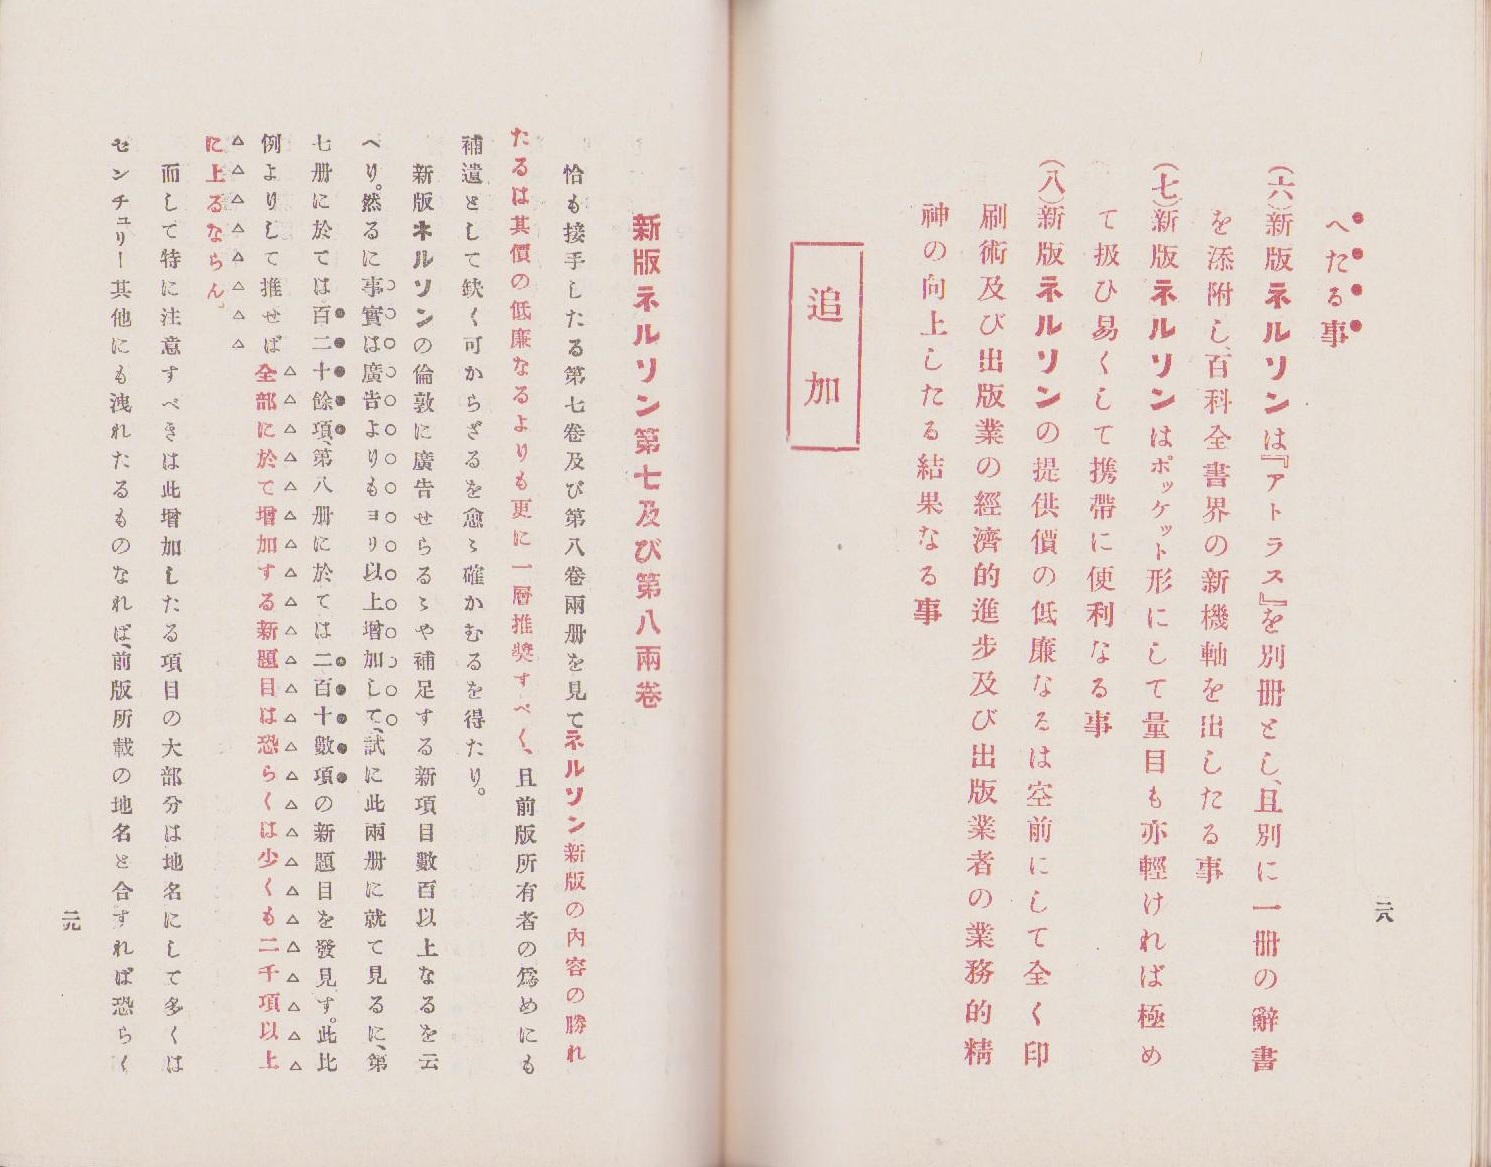 へたる事
(六)新版ネルソンは『アトラス』を別冊とし、且別に一冊の辭書
を添附し、百科全書界の新機軸を出したる事
(七)新版ネルソンはポッケット形にして量目も亦輕ければ極め
て扱ひ易くして携帶に便利なる事
(八)新版ネルソンの提供價の低廉なるは空前にして全く印
刷術及び出版業の經濟的進步及び出版業者の業務的精
神の向上したる結果なる事
追加
二八
新版ネルソン第七及び第八兩卷
恰も接手したる第七卷及び第八卷兩册を見てネルソン新版の內容の勝れ
たるは其價の低廉なるよりも更に一層推奬すべく、且前版所有者の爲めにも
補遺として缺く可からざるを愈〻確かむるを得たり。
新版ネルソンの倫敦に廣告せらるゝや補足する新項目數百以上なるを云
へり。然るに事實は廣告よりもヨリ以上增加して、試に此兩册に就て見るに、第
七册に於ては百二十餘項、第八册に於ては二百十數項の新題目を發見す。此比
例よりして推せば全部に於て增加する新題目は恐らくは少くも二千項以上
に上るならん。
而して特に注意すべきは此增加したる項目の大部分は地名にして多くは
センチュリー其他にも洩れたるものなれば、前版所載の地名と合すれば恐らく
二九